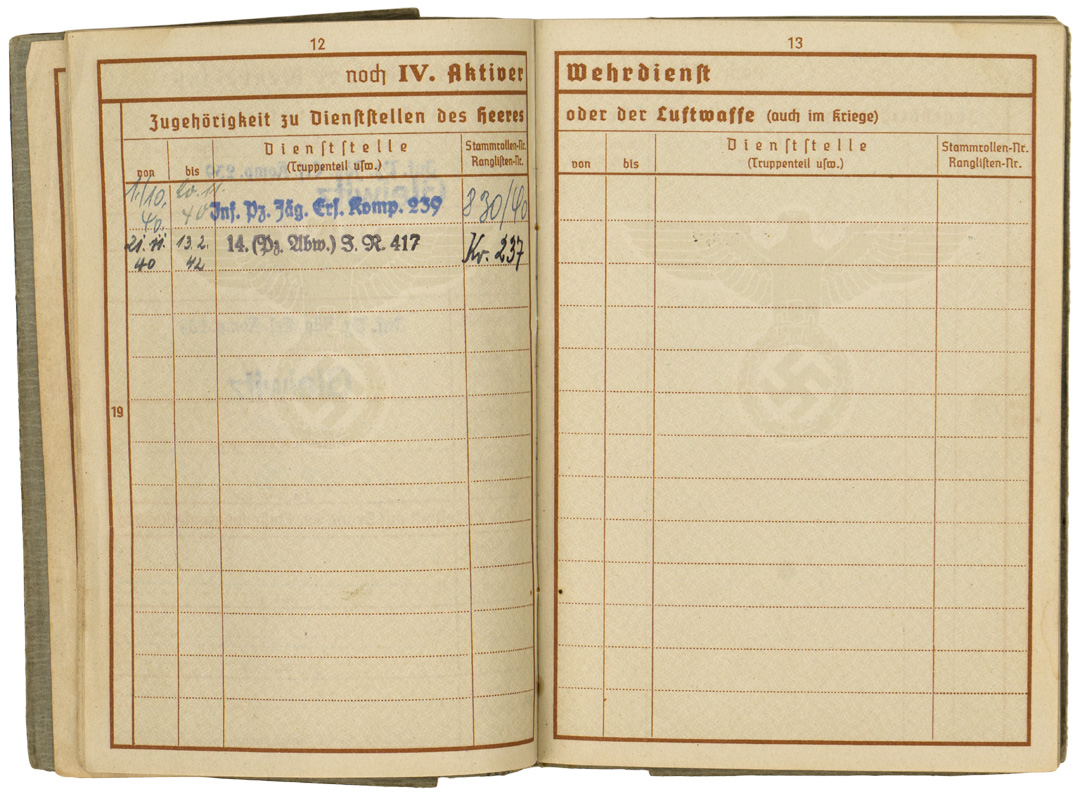 12
noch IV. Aktiver
Zugehörigkeit zu Dienststellen des Heeres
von
bis
Dienststelle
(Truppenteil usw.)
Stammrollen-Nr.
Ranglisten-Nr.
1./10. 20. 11.
40. 40
Inf. Pz. Jäg. Ers. Komp. 239
830/40
21. 11. 13. 2.
40 42
14. (Pz. Abw.) I. R. 417
Kr. 237
19
13
Wehrdienst
oder der Luftwaffe (auch im Kriege)
von
bis
Dienststelle
(Truppenteil usw.)
Stammrollen-Nr.
Ranglisten-Nr.